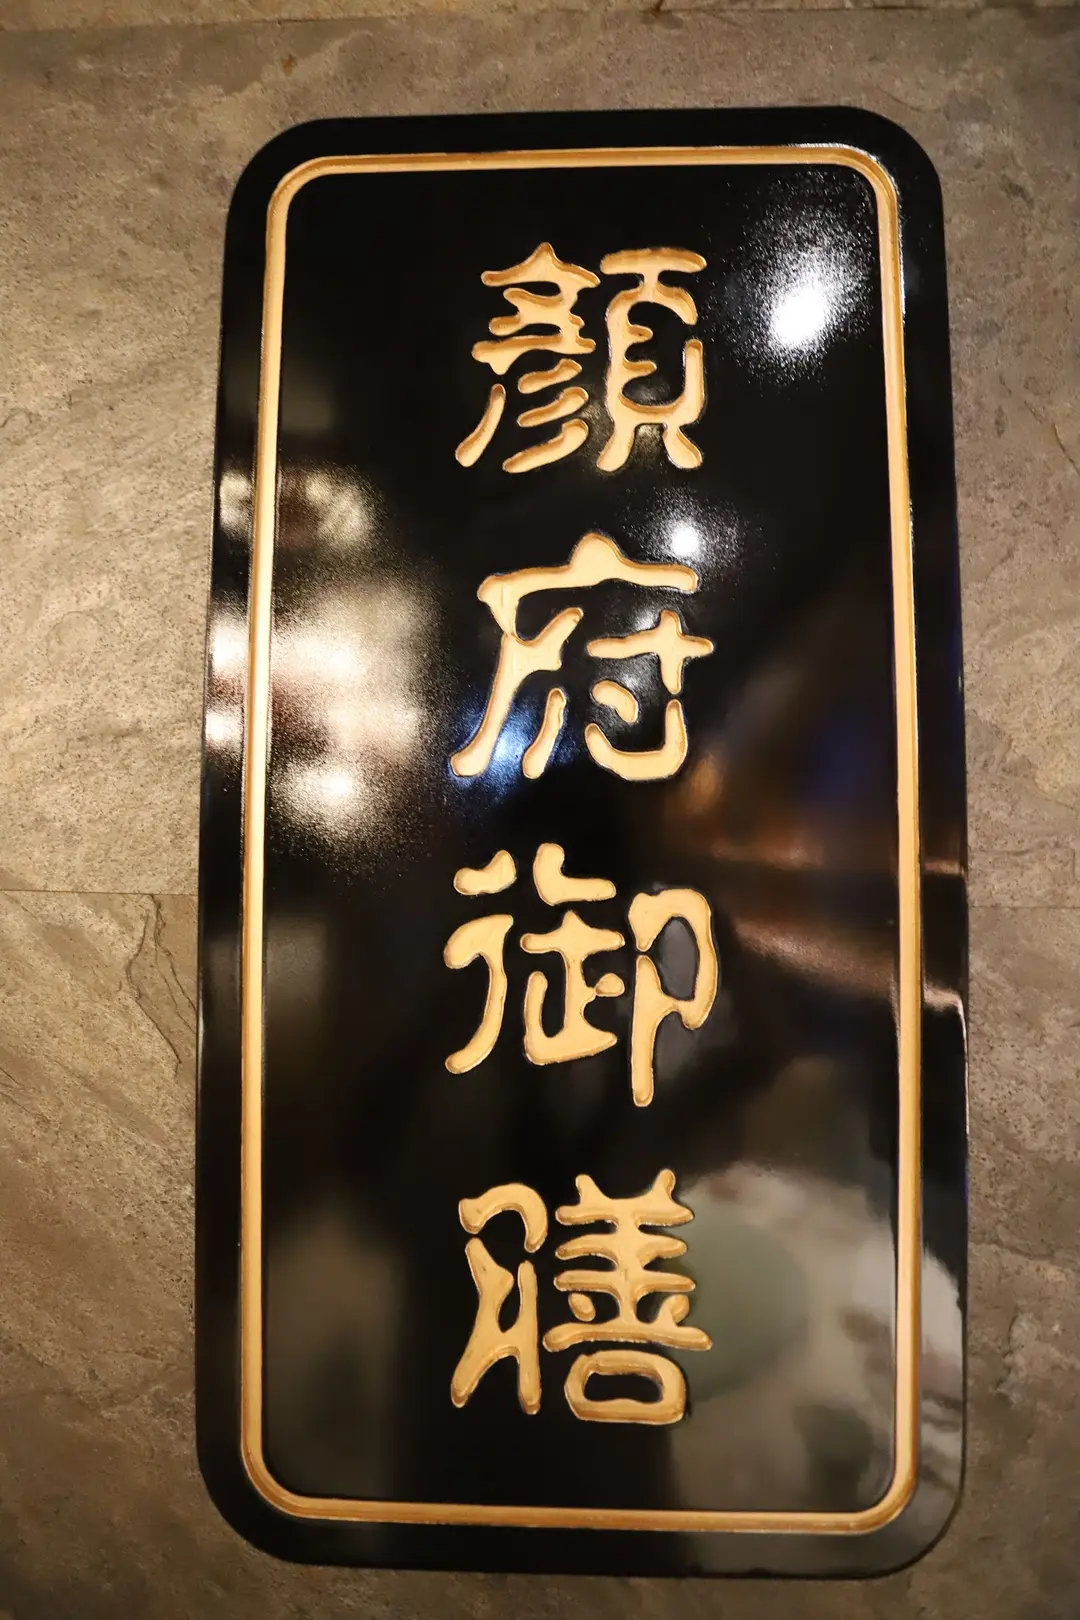 顏府御膳